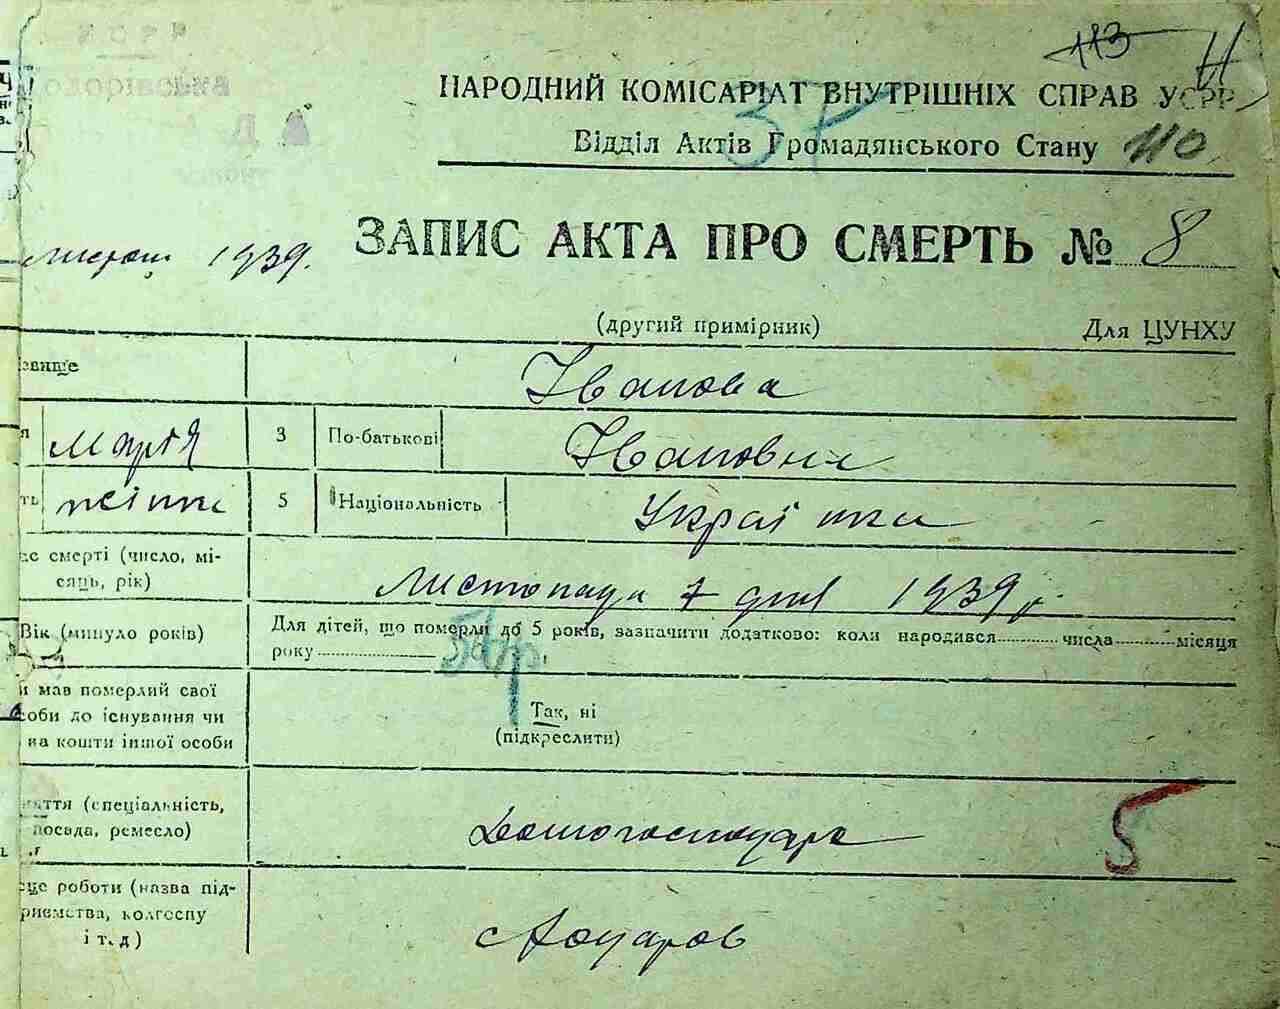 113 Н
НАРОДНИЙ КОМІСАРІАТ ВНУТРІШНІХ СПРАВ УСРР
37
Відділ Актів Громадянського Стану 110
ЗАПИС АКТА ПРО СМЕРТЬ № 8
1939.
(другий примірник) Для ЦУНХУ
звище Іванова
я Марія 3 По-батькові Івановна
ть жіноч 5 Національність Українка
ас смерті (число, мі-
сяць, рік)
Листопада 7 дня 1939 р.
Вік (минуло років)
Для дітей, що померли до 5 років, зазначити додатково: коли народився числа місяця
року
и мав померлий свої
соби до існування чи
на кошти іншої особи
Так, ні
(підкреслити)
няття (спеціальність,
посада, ремесло)
Домогосподарк
5
сце роботи (назва під-
приємства, колгоспу
і т. д)